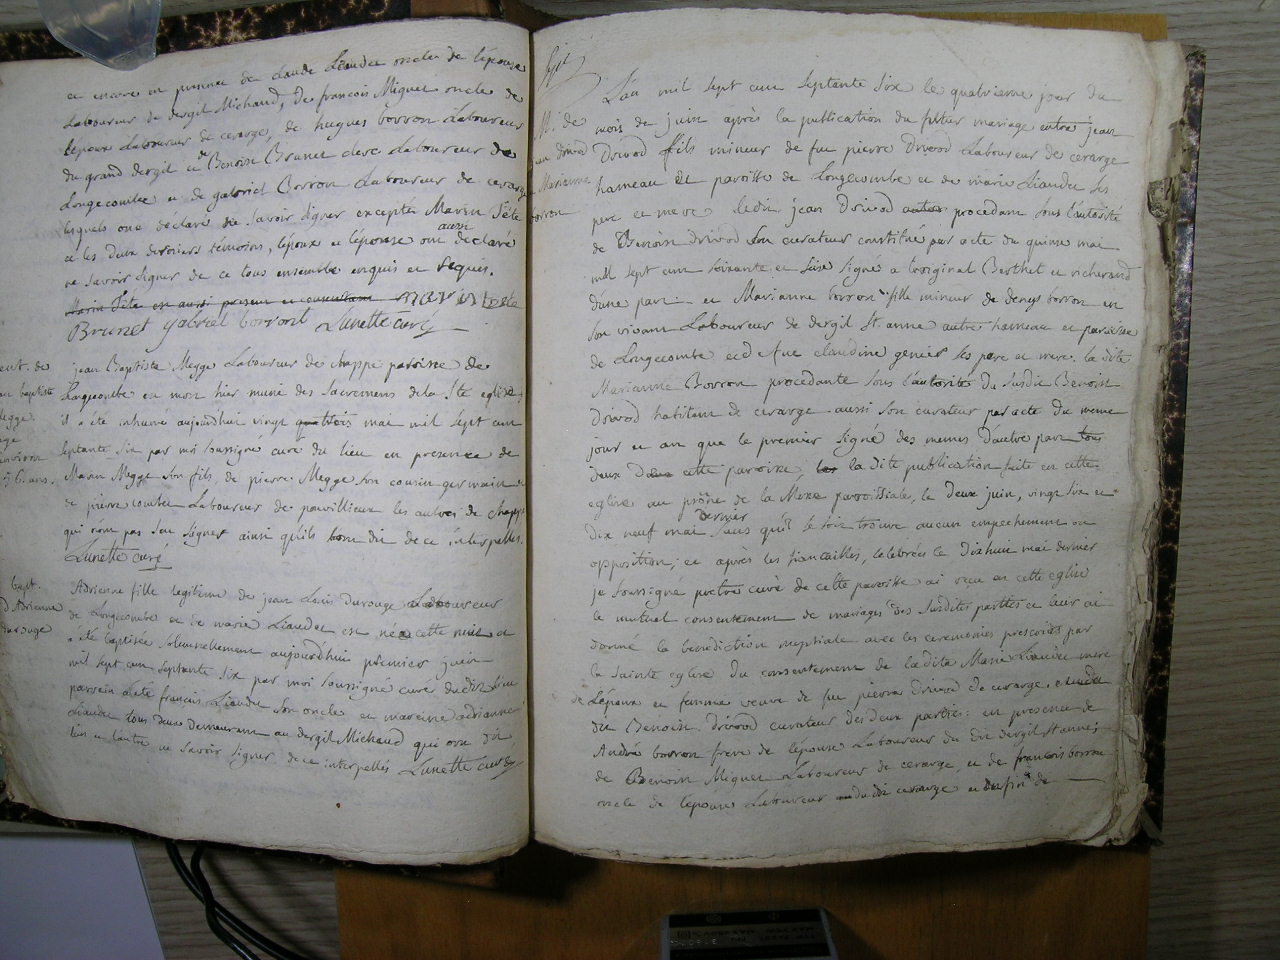 et encore en presence de claude Liaudet oncle de l'épouse
Laboureur de dergil Michaud, de françois Miguet oncle de
lepoux Laboureur de cerarge, de hugues borron Laboureur
du grand dergil et de Benoin Brunet clerc Laboureur de
Longecombe et de gabriel Borron Laboureur de cerarge
lesquels ont déclaré de Savoir Signer excepté Marin Tété
et les deux derniers témoins, l'époux et l'épouse ont aussi declaré
ne Savoir Signer de ce tous ensemble enquis et requis.
Marin Tété est aussi present et consentant marin tete
Brunet gabriel borront Lunette curé
jean Baptiste Megge Laboureur de chappe paroisse de
Longecombe est mort hier muni des Sacremens de la Ste eglise
il a été inhumé aujourdhui vingt trois mai mil sept cent
septante Six par moi soussigné curé du lieu en presence de
Marin Megge Son fils, de pierre Megge Son cousin germain
de pierre combet Laboureur de pavillieux les autres de chappe
qui n'ont pas Seu Signer ainsi qu'ils l'ont dit de ce interpellés.
Lunette curé
bapt.
d'Adrienne
durouge
Adrienne fille legitime de jean Louis durouge Laboureur
de Longecombe et de marie Liaudet est née cette nuit et
a été baptisée Solennellement aujourdhui premier juin
mil sept cent septante Six par moi Soussigné curé dudit lieu
parrein a été françois Liaudet Son oncle et mareine adrianne
Liaudet tous deux demeurant au dergil Michaud qui ont dit
l'un et l'autre ne Savoir Signer de ce interpellés Lunette curé
M. de
jean Drivod
et Marianne
borron
L'an mil sept cent septante Six le quatrieme jour du
mois de juin après la publication du futur mariage entre jean
Drivod fils mineur de feu pierre Drivod Laboureur de cerarge
hameau et paroisse de Longecombe et de marie Liaudet Ses
pere et mere ledit jean Drivod procedant Sous l'autorité
de Benoin drivod Son curateur constitué par acte du quinze mai
mil sept cent Soixante et Seize Signé a l'original Berthet et richerand
d'une part et Marianne borron fille mineur de denys borron en
Son vivant Laboureur de dergil St. anne autre hameau et paroisse
de Longecombe et de feue claudine genier Ses pere et mere. la dite
Marianne Borron procedante Sous l'autorité du Susdit Benoin
Drivod habitant de cerarge aussi Son curateur par acte du meme
jour et an que le premier Signé des memes d'autre part tous
deux de cette paroisse, la dite publication faite en cette
eglise au prône de la Messe paroissiale, le deux juin, vingt six et
dix neuf mai dernier Sans qu'il Se Soit trouvé aucun empechement ou
opposition; et après les fiancailles, celebrées le Dixhuit mai dernier
je Soussigné prêtre curé de cette paroisse ai recu en cette eglise
le mutuel consentement de mariages des Susdites parties et leur ai
donné la benediction nuptiale avec les ceremonies prescrites par
la Sainte eglise du consentement de ladite Marie Liaudet mere
de L'époux et femme veuve de feu pierre Drivod de cerarge, et dudit
dit Benoin Drivod curateur des deux parties: en presence de
André borron frere de l'epouse Laboureur du dit dergil St anne;
de Benoin Miguet Laboureur de cerarge, et de francois borron
oncle de l'epouse Laboureur du dit cerarge et enfin de